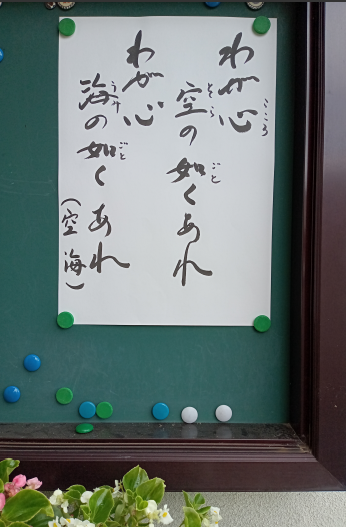 わが心
空の如くあれ
わが心
海の如くあれ
(空海)
こころ
そら
ごと
うみ
ごと